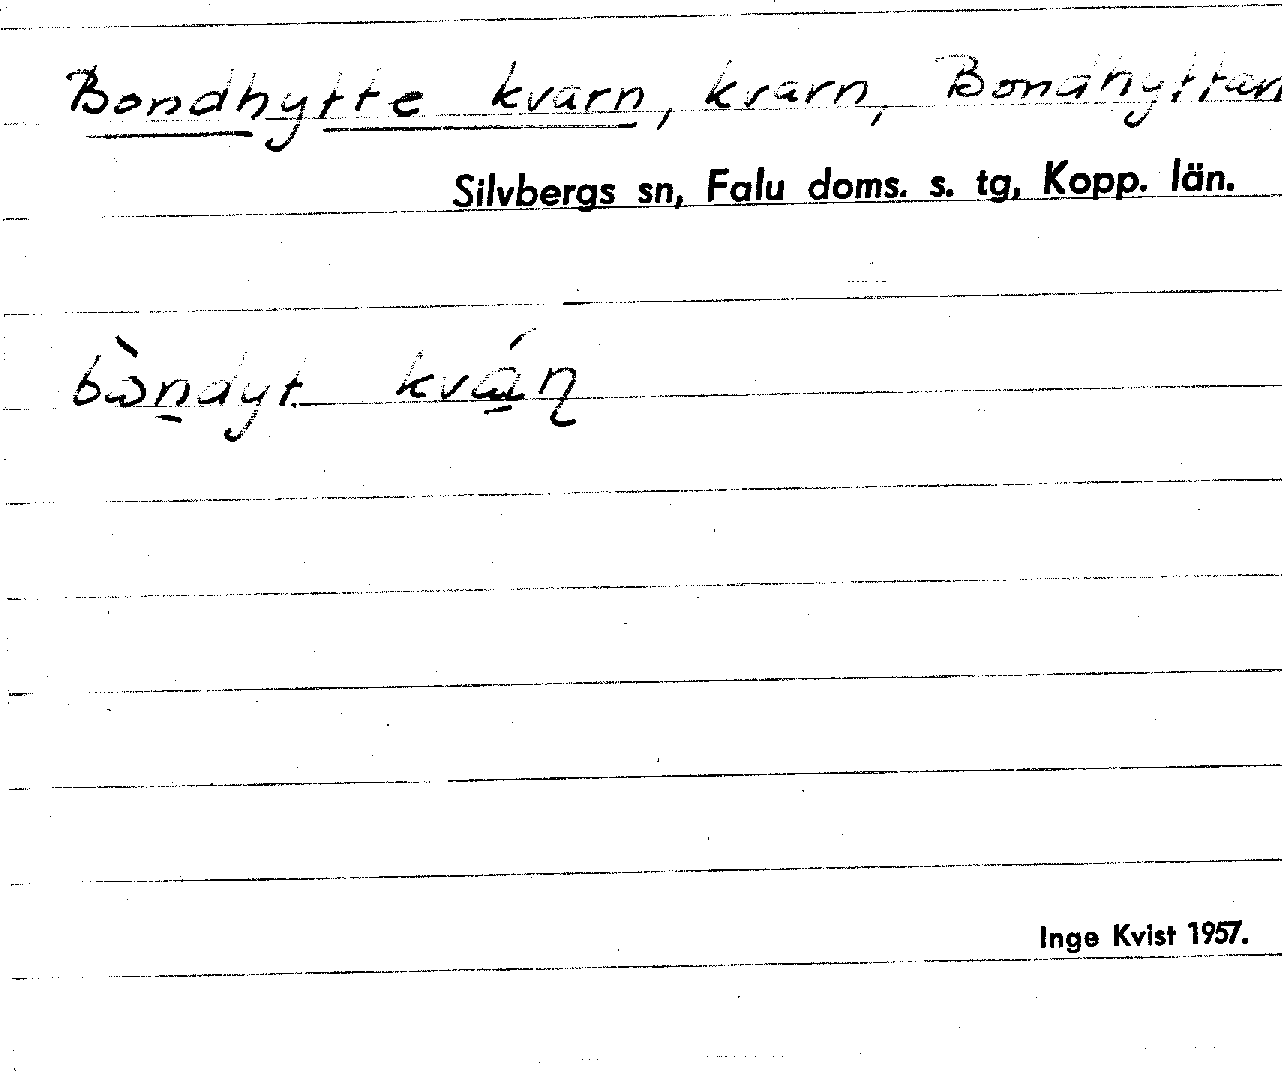 Bondhytte kvarn, kvarn, Bondhyttan
Silvbergs sn, Falu doms. s. tg, Kopp. län.
bòndyt kván
Inge Kvist 1957.